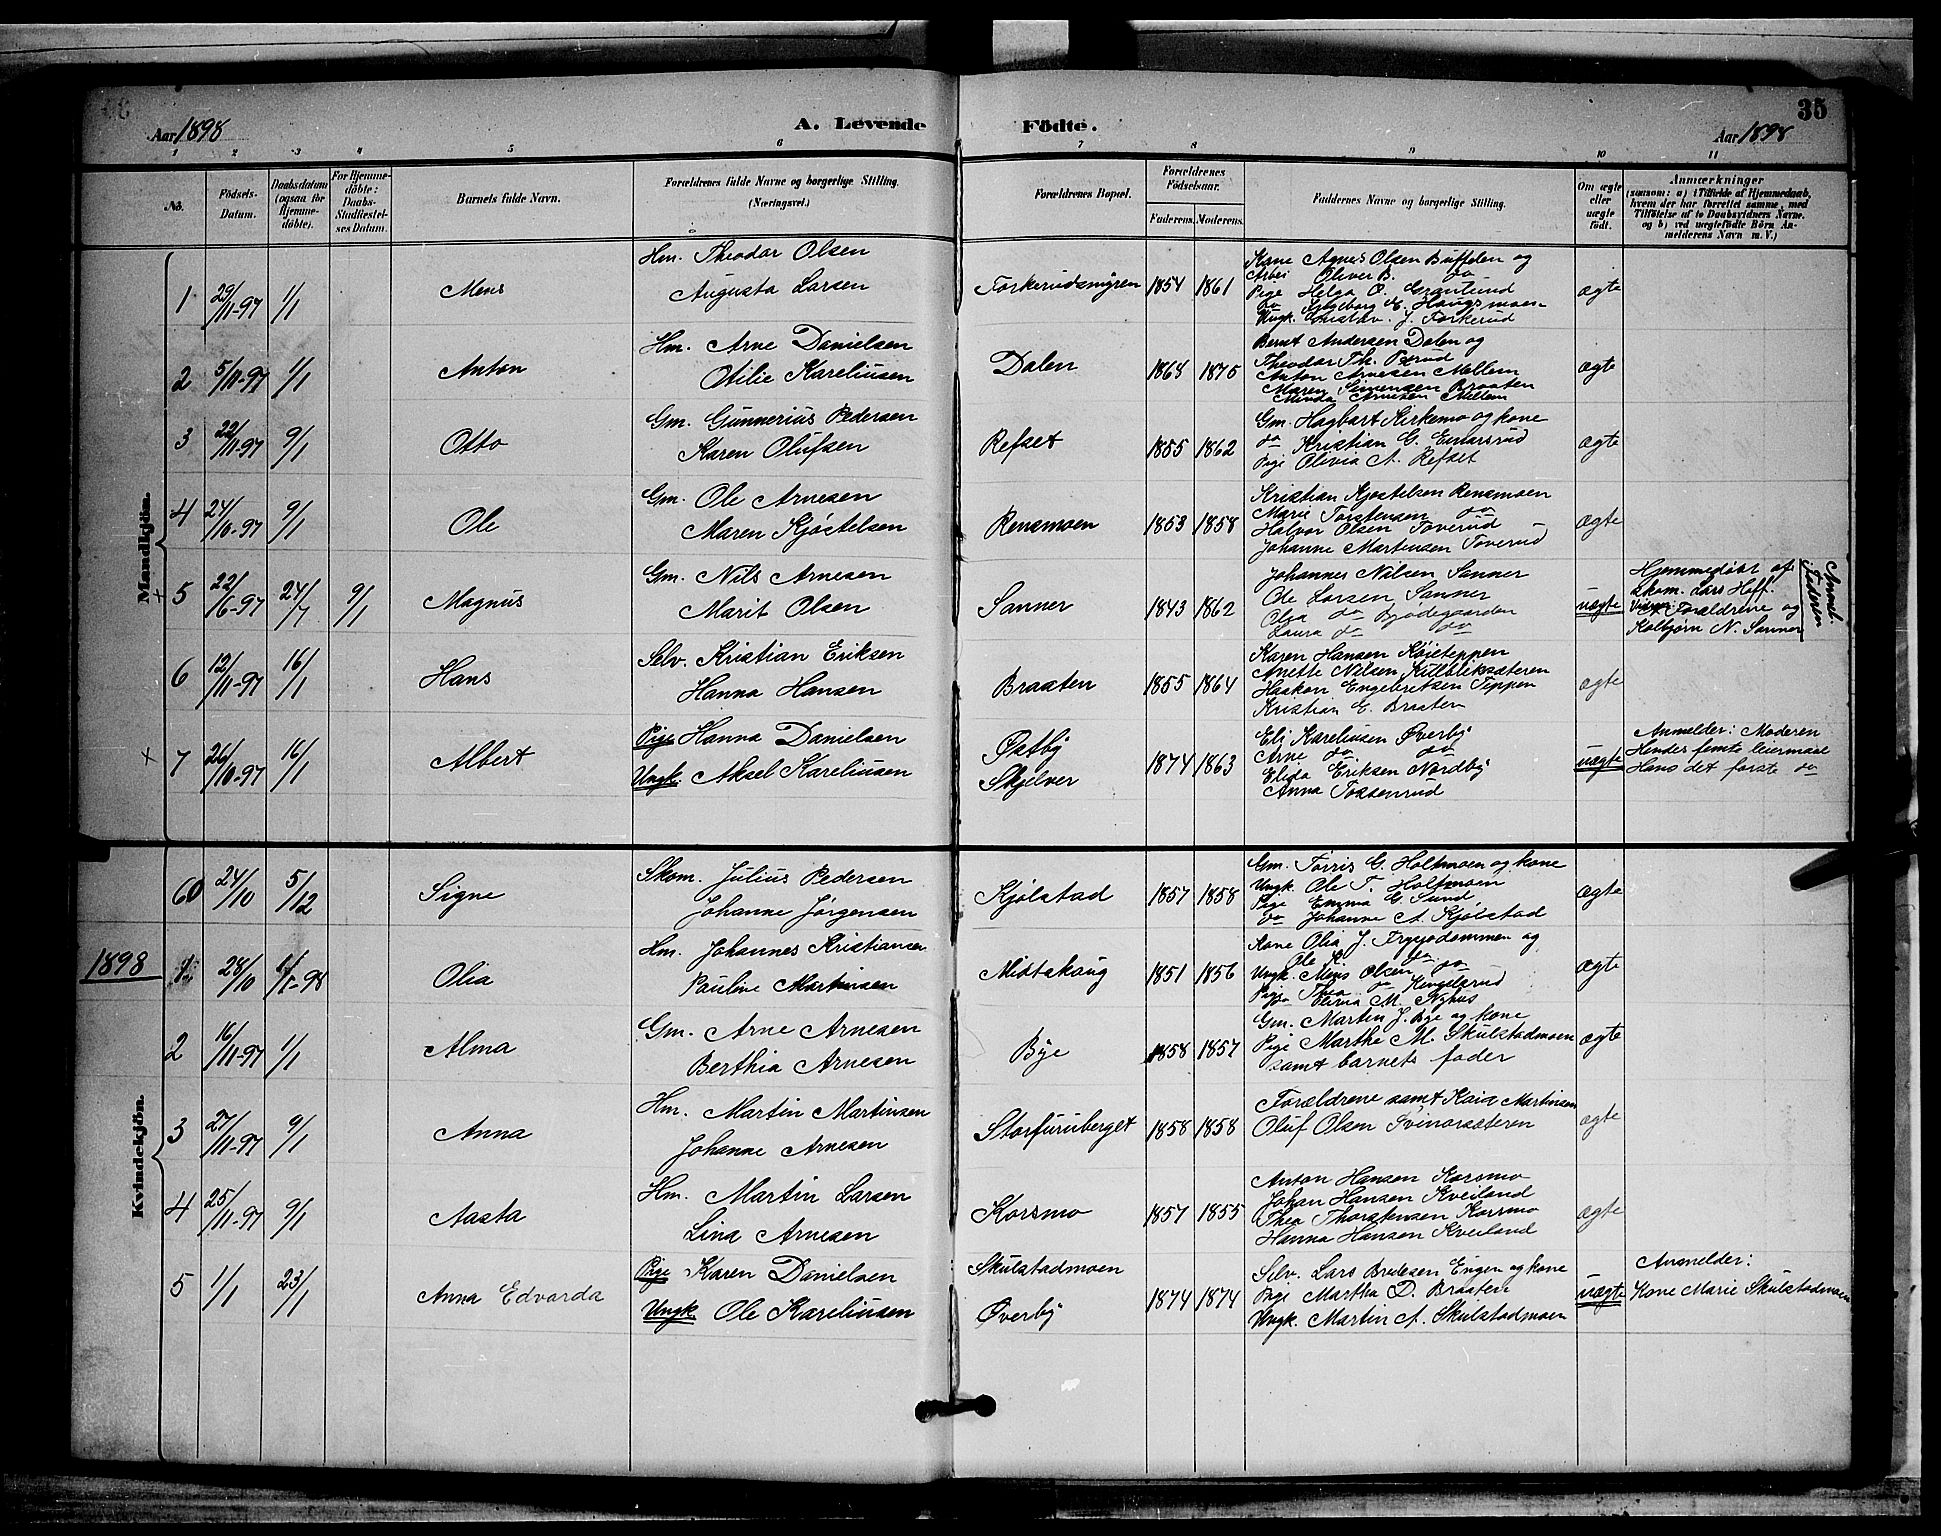 35
Aar 1898
A. Levende Födte.
Aar 1898
1 2 3 4 5 6 7 8 9 10 11
No.
Födsels-Datum.
Daabsdatum (ogsaa for Hjemme-döbte).
For Hjemme-döbte: Daabs-Stadfæstel-ses Datum.
Barnets fulde Navn.
Forældrenes fulde Navne og borgerlige Stilling. (Næringsvei.)
Forældrenes Bopæl.
Forældrenes Födselsaar.
Faderens. Moderens.
Faddernes Navne og borgerlige Stilling.
Om ægte eller uægte födt.
Anmærkninger
(saasom: a) i Tilfælde af Hjemmedaab,
hvem der har forrettet samme, med
Tilföielse af to Daabsvidners Navne.
og b) ved uægtefödte Börn An-
melderens Navn m. V.)
Mandkjön.
1 29/11-97 1/1 Mens
Hm. Theodor Olsen
Augusta Larsen
Forkerudsmyren 1854 1861
Kone Agnes Olsen Buffelen og
Arbei Oliver B. do
Pige Helga O. Granlund
do Ingeborg E. Haugsmoen
Ungk. Gustav J. Forkerud
ægte
2 5/11-97 1/1 Anton
Hm. Arne Danielsen
Otilie Kareliusen
Dalen 1868 1875
Bernt Andersen Dalen og
Theodor Th. Perud
Anton Arnesen Mellem
Maren Simensen Braaten
Minda Arnesen Mellem
ægte
3 22/11-97 9/1 Otto
Gm. Gunnerius Pedersen
Karen Olufsen
Refset 1855 1862
Gm. Hagbart Kirkemo og kone
do Kristian G. Einarsrud
Pige Olivia A. Refset
ægte
4 24/10-97 9/1 Ole
Gm. Ole Arnesen
Maren Kjöstelsen
Rensmoen 1853 1858
Kristian Kjostelsen Rensmoen
Marie Torstensen do
Halvor Olsen Toverud
Johanne Martinsen Toverud
ægte
+ 5 22/6-97 24/7 9/1 Magnus
Gm. Nils Arnesen
Marit Olsen
Sanner 1843 1862
Johannes Nilsen Sanner
Ole Larsen Sanner
Olga do Gjødegaarden
Laura do do
uægte
Hjemmedøbt af
Skom. Lars Hoff.
Vidner: Forældrene og
Kolbjørn N. Sanner
Anmel. Faderen
6 12/11-97 16/1 Hans
Selv. Kristian Eriksen
Hanna Hansen
Braaten 1855 1864
Karen Hansen Køieteppen
Anette Nilsen Kulbliksæteren
Haakon Engebretsen Teppen
Kristian E. Braaten
ægte
+ 7 26/10-97 16/1 Albert
Pige Hanna Danielsen
Ungk. Aksel Kareliusen
Østby
Skjelver 1874 1863
Eli Kareliusen Øverby
Arne do do
Elida Eriksen Nordby
Anna Tossenrud
uægte
Anmelder: Moderen
Hendes femte leiermaal
Hans det første do
Kvindekjön.
60 24/10 5/12 Signe
Skom. Julius Pedersen
Johanne Jörgensen
Kjølstad 1857 1858
Gm. Torris G. Holtmoen og kone
Ungk. Ole T. Holtmoen
Pige Emma G. Sund
do Johanne A. Kjølstad
ægte
1898
28/10 1/1-98 Olia
Hm. Johannes Kristiansen
Pauline Martinsen
Midtskoug 1851 1856
Kone Olia J. Tryggdammen og
Ole K. do
Ungk. Mens Olsen do
Pige Thea do Kingelsrud
Pige M. Nyhus
ægte
2 16/11-97 1/1 Alma
Gm. Arne Arnesen
Berthia Arnesen
Bye 1858 1857
Gm. Martin J. Bye og kone
Pige Marthe M. Skulstadmoen
samt barnets fader
ægte
3 27/11-97 9/1 Anna
Hm. Martin Martinsen
Johanne Arnesen
Storfuruberget 1858 1858
Forældrene samt Kaia Martinsen
Oluf Olsen Svinorsæteren
ægte
4 25/11-97 9/1 Aasta
Hm. Martin Larsen
Lina Arnesen
Korsmo 1857 1855
Anton Hansen Korsmo
Johan Hansen Kveiland
Thea Thorstensen Korsmo
Hanna Hansen Kveiland
ægte
5 1/1 23/1 Anna Edvarda
Pige Karen Danielsen
Ungk. Ole Kareliusen
Skulstadmoen
Øverby 1874 1874
Selv. Lars Bredesen Engen og kone
Pige Martha D. Braaten
Ungk. Martin A. Skulstadmoen
uægte
Anmelder:
Kone Marie Skulstadmoen